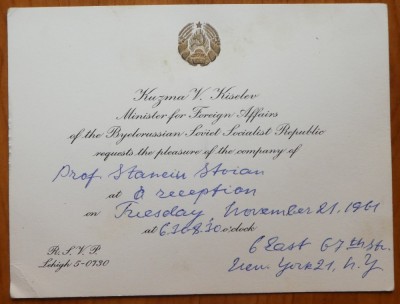 Kuzma V. Kiselev
Minister for Foreign Affairs
of the Byelorussian Soviet Socialist Republic
requests the pleasure of the company of
Prof Stanciu Stoian
at a reception
on Tuesday, November 21. 1961
at 6.30-8.30 o'clock
R.S.V.P. 6 East 67th Str.
Lehigh 5-0730 New York 21, N.Y